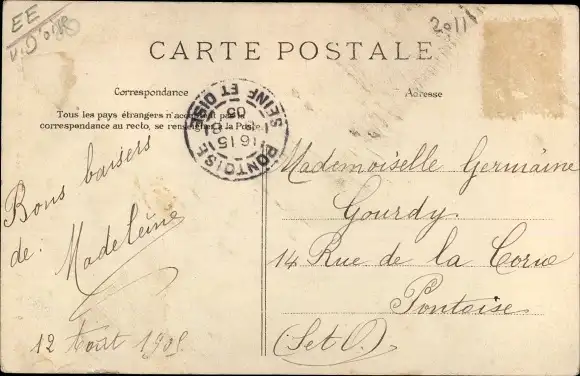 EE
V. D'oise
3011
CARTE POSTALE
Correspondance
Adresse
Tous les pays étrangers n'acceptent pas la
correspondance au recto, se renseigner à la Poste.
PONTOISE
16 15
05
SEINE ET OISE
Bons baisers
de Madeleine
12 Aout 1905
Mademoiselle Germaine
Gourdy
14 Rue de la Corne
Pontoise
(S et O)